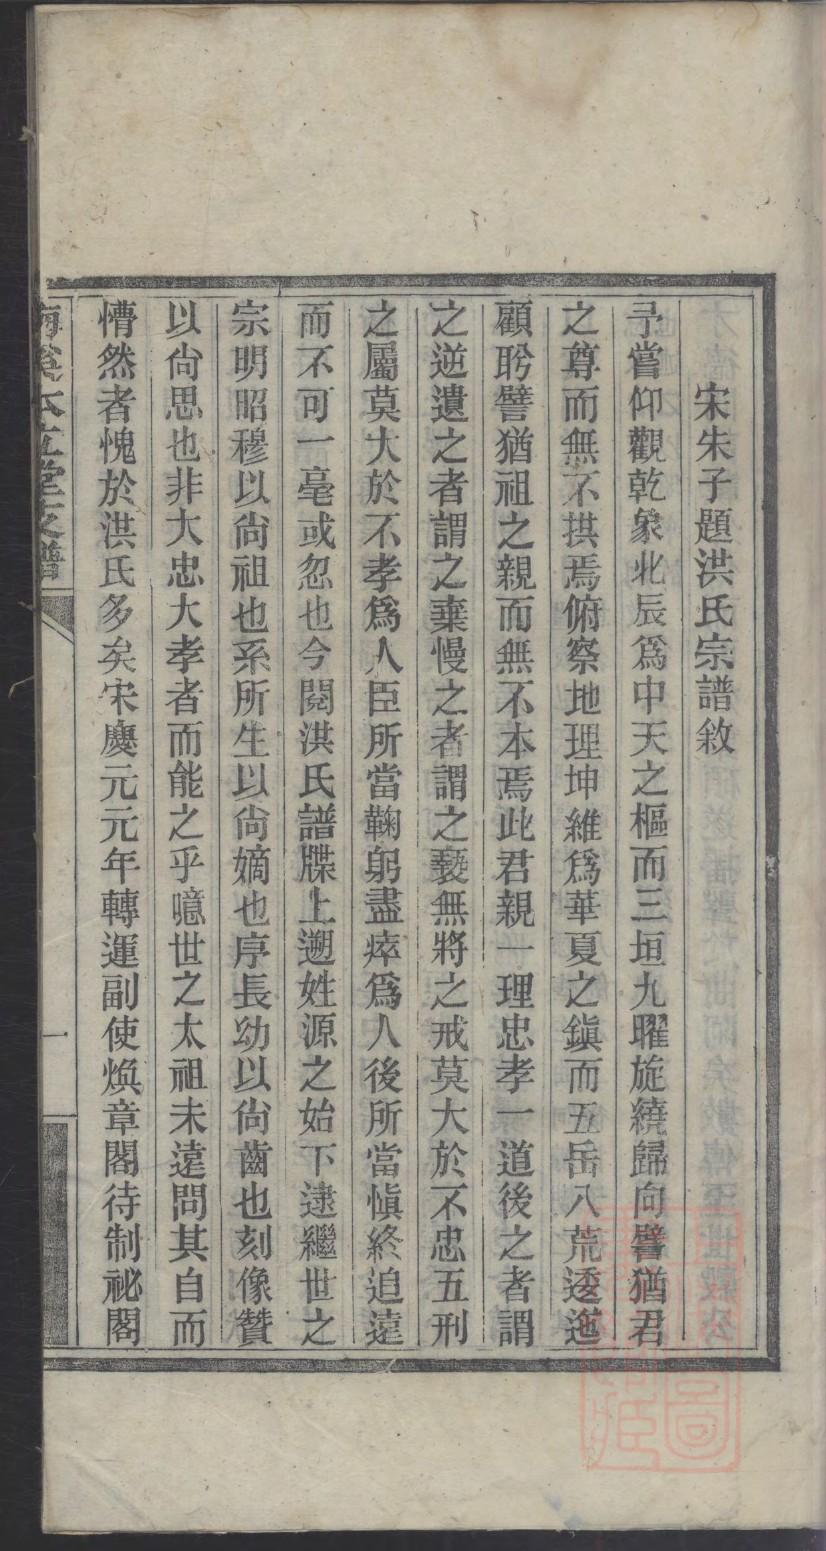 宋朱子題洪氏宗譜敘
予嘗仰觀乾象北辰爲中天之樞而三垣九曜旋繞歸向譬猶君
之尊而無不拱焉俯察地理坤維爲華夏之鎭而五岳八荒逶迤
顧盻譬猶祖之親而無不本焉此君親一理忠孝一道後之者謂
之逆遺之者謂之棄慢之者謂之褻無將之戒莫大於不忠五刑
之屬莫大於不孝爲人臣所當鞠躬盡瘁爲人後所當愼終追遠
而不可一毫或忽也今閱洪氏譜牒上遡姓源之始下逮繼世之
宗明昭穆以尙祖也系所生以尙嫡也序長幼以尙齒也刻像贊
以尙思也非大忠大孝者而能之乎噫世之太祖未遠問其自而
懵然者愧於洪氏多矣宋慶元元年轉運副使煥章閣待制祕閣
敦煌 本立堂支譜
一